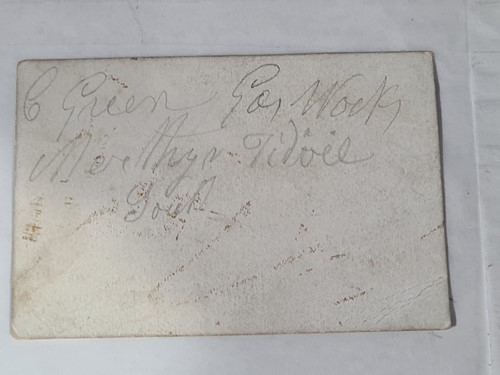 C Green Gas Works
Merthyr Tidvil